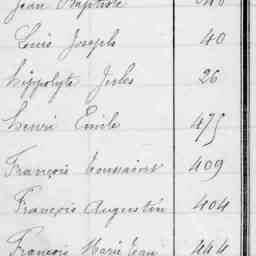 Jean Baptiste
Louis Joseph 40
Hippolyte Jules 26
Henri Emile 475
François Toussaint 409
François Augustin 404
François Marie Jean 444